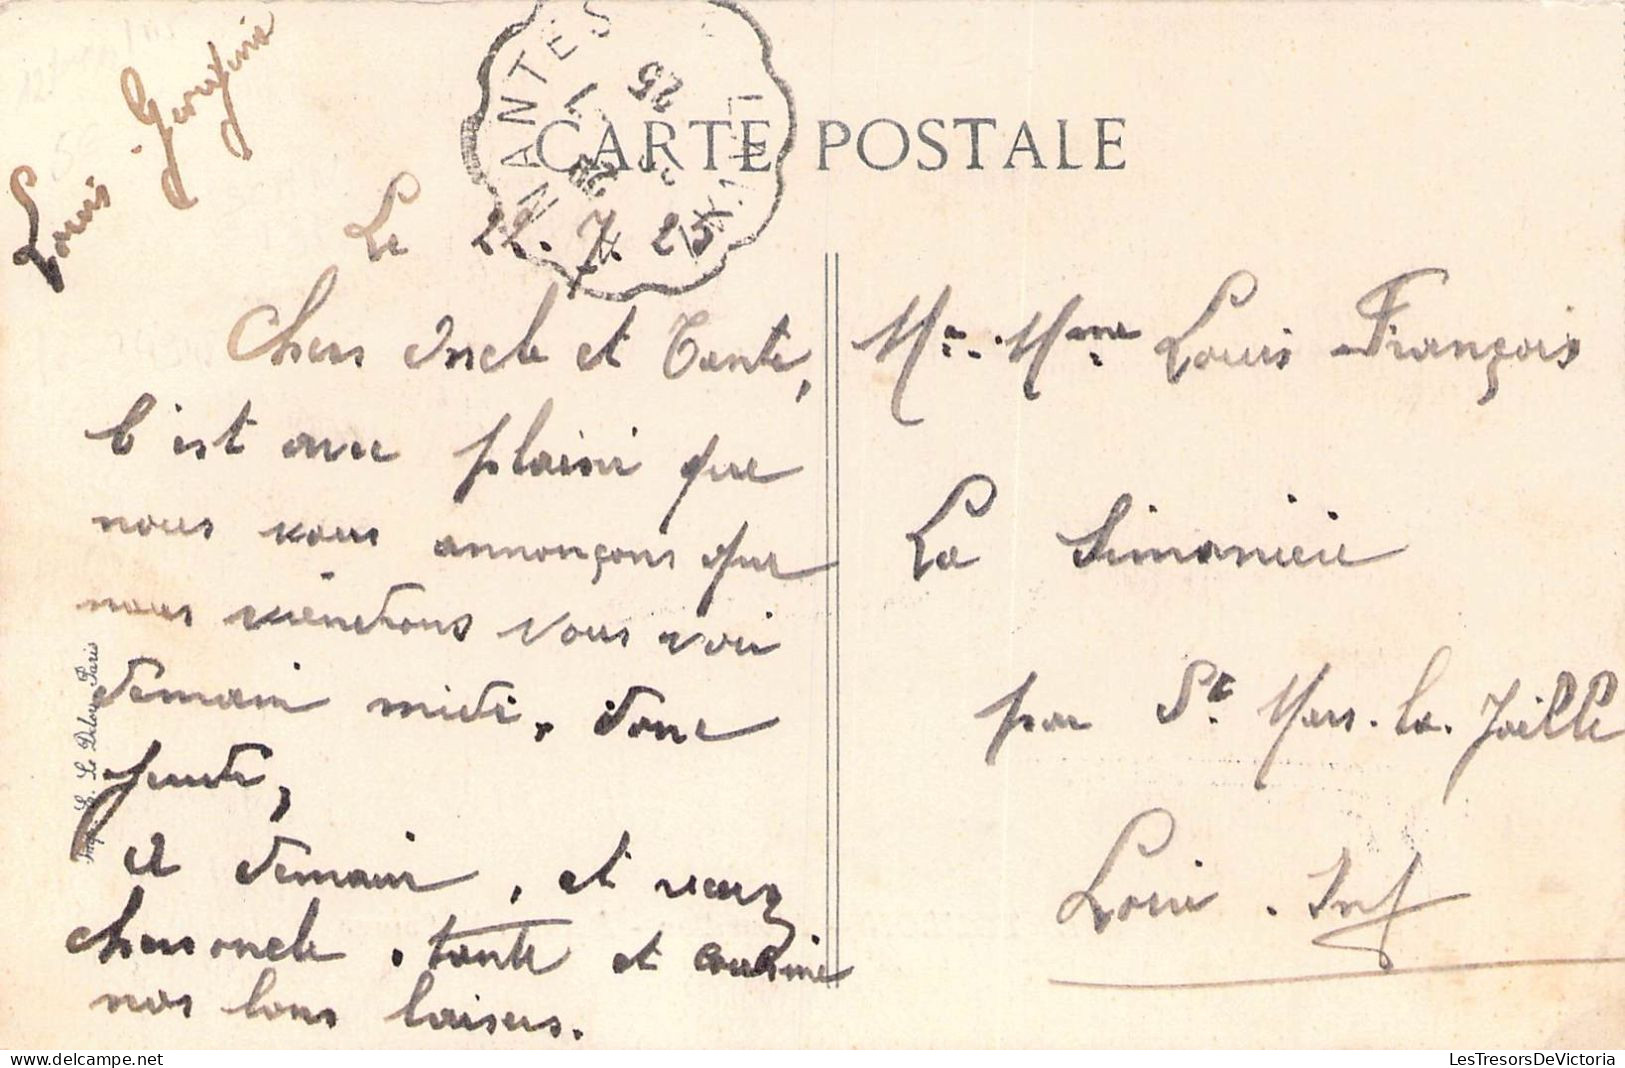 Louis
NANTES
25
CARTE POSTALE
Le 22.7.25
Chers Oncle et Tante,
C'est avec plaisir que
nous vous annonçons que
nous viendrons vous voir
demain midi, donc
jeudi,
A demain, et recevez
chers oncle, tante et cousine
nos bons baisers.
Mr. Mme Louis François
La Simonière
par St. Mars-la-Jaille
Loire-Inf
Imp. E. Le Deley Paris
LesTresorsDeVictoria